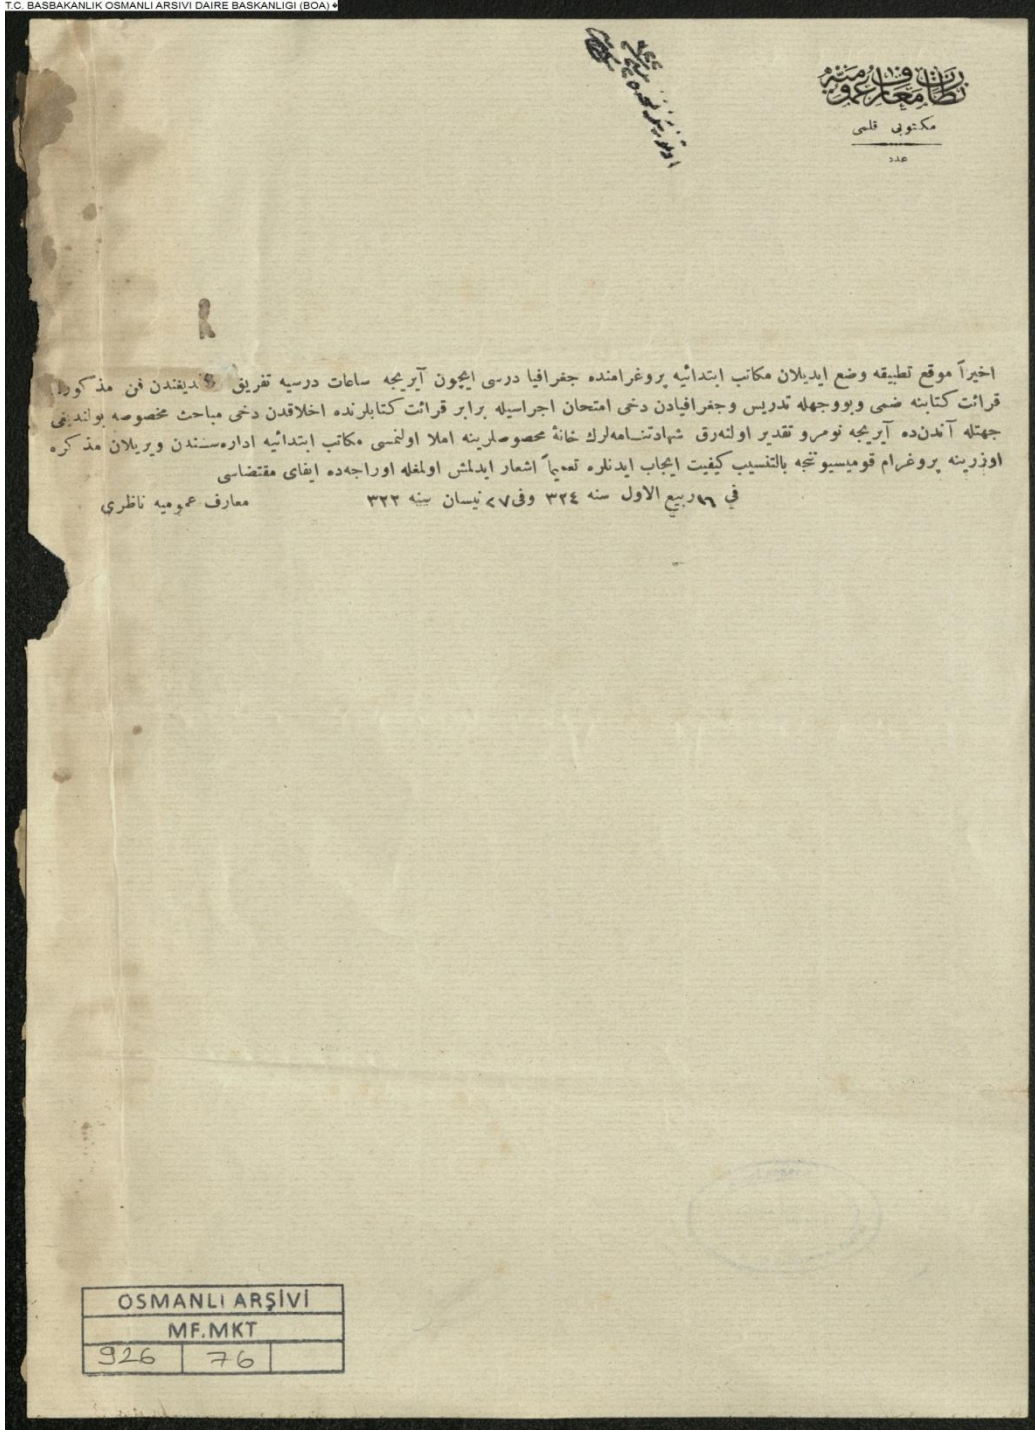 T.C. BASBAKANLIK OSMANLI ARSIVI DAIRE BASKANLIGI (BOA)
نظارت معارف عمومیه
مکتوبی قلمی
عدد
اخیراً موقع تطبیقه وضع ایدیلان مکاتب ابتدائیه پروغرامنده جغرافیا درسی ایچون آیریجه ساعات درسیه تفریق ‌دیغندن فن مذکورك
قرائت کتابنه ضمی وبووجهله تدریس وجغرافیادن دخی امتحان اجراسیله برابر قرائت کتابلرنده اخلاقدن دخی مباحث مخصوصه بولندیغی
جهتله آندن‌ده آیریجه نومرو تقدیر اولنه‌رق شهادتنامه‌لرك خانۀ مخصوصلرینه املا اولنمسی مکاتب ابتدائیه اداره‌سندن ویریلان مذکره
اوزرینه پروغرام قومیسیوننجه بالتنسیب کیفیت ایجاب ایدنلره تعمیماً اشعار ایدلمش اولمغله اوراجه‌ده ایفای مقتضاسی
في ١٦ ربیع الاول سنه ٣٢٤ وفی ٢٧ نیسان سنه ٣٢٢
معارف عمومیه ناظری
OSMANLI ARŞİVİ
MF.MKT
926 76